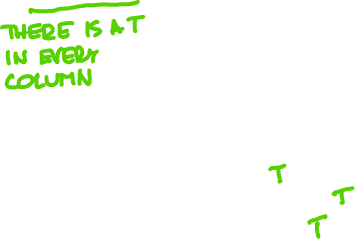 THERE IS A T
IN EVERY
COLUMN
T
T
T